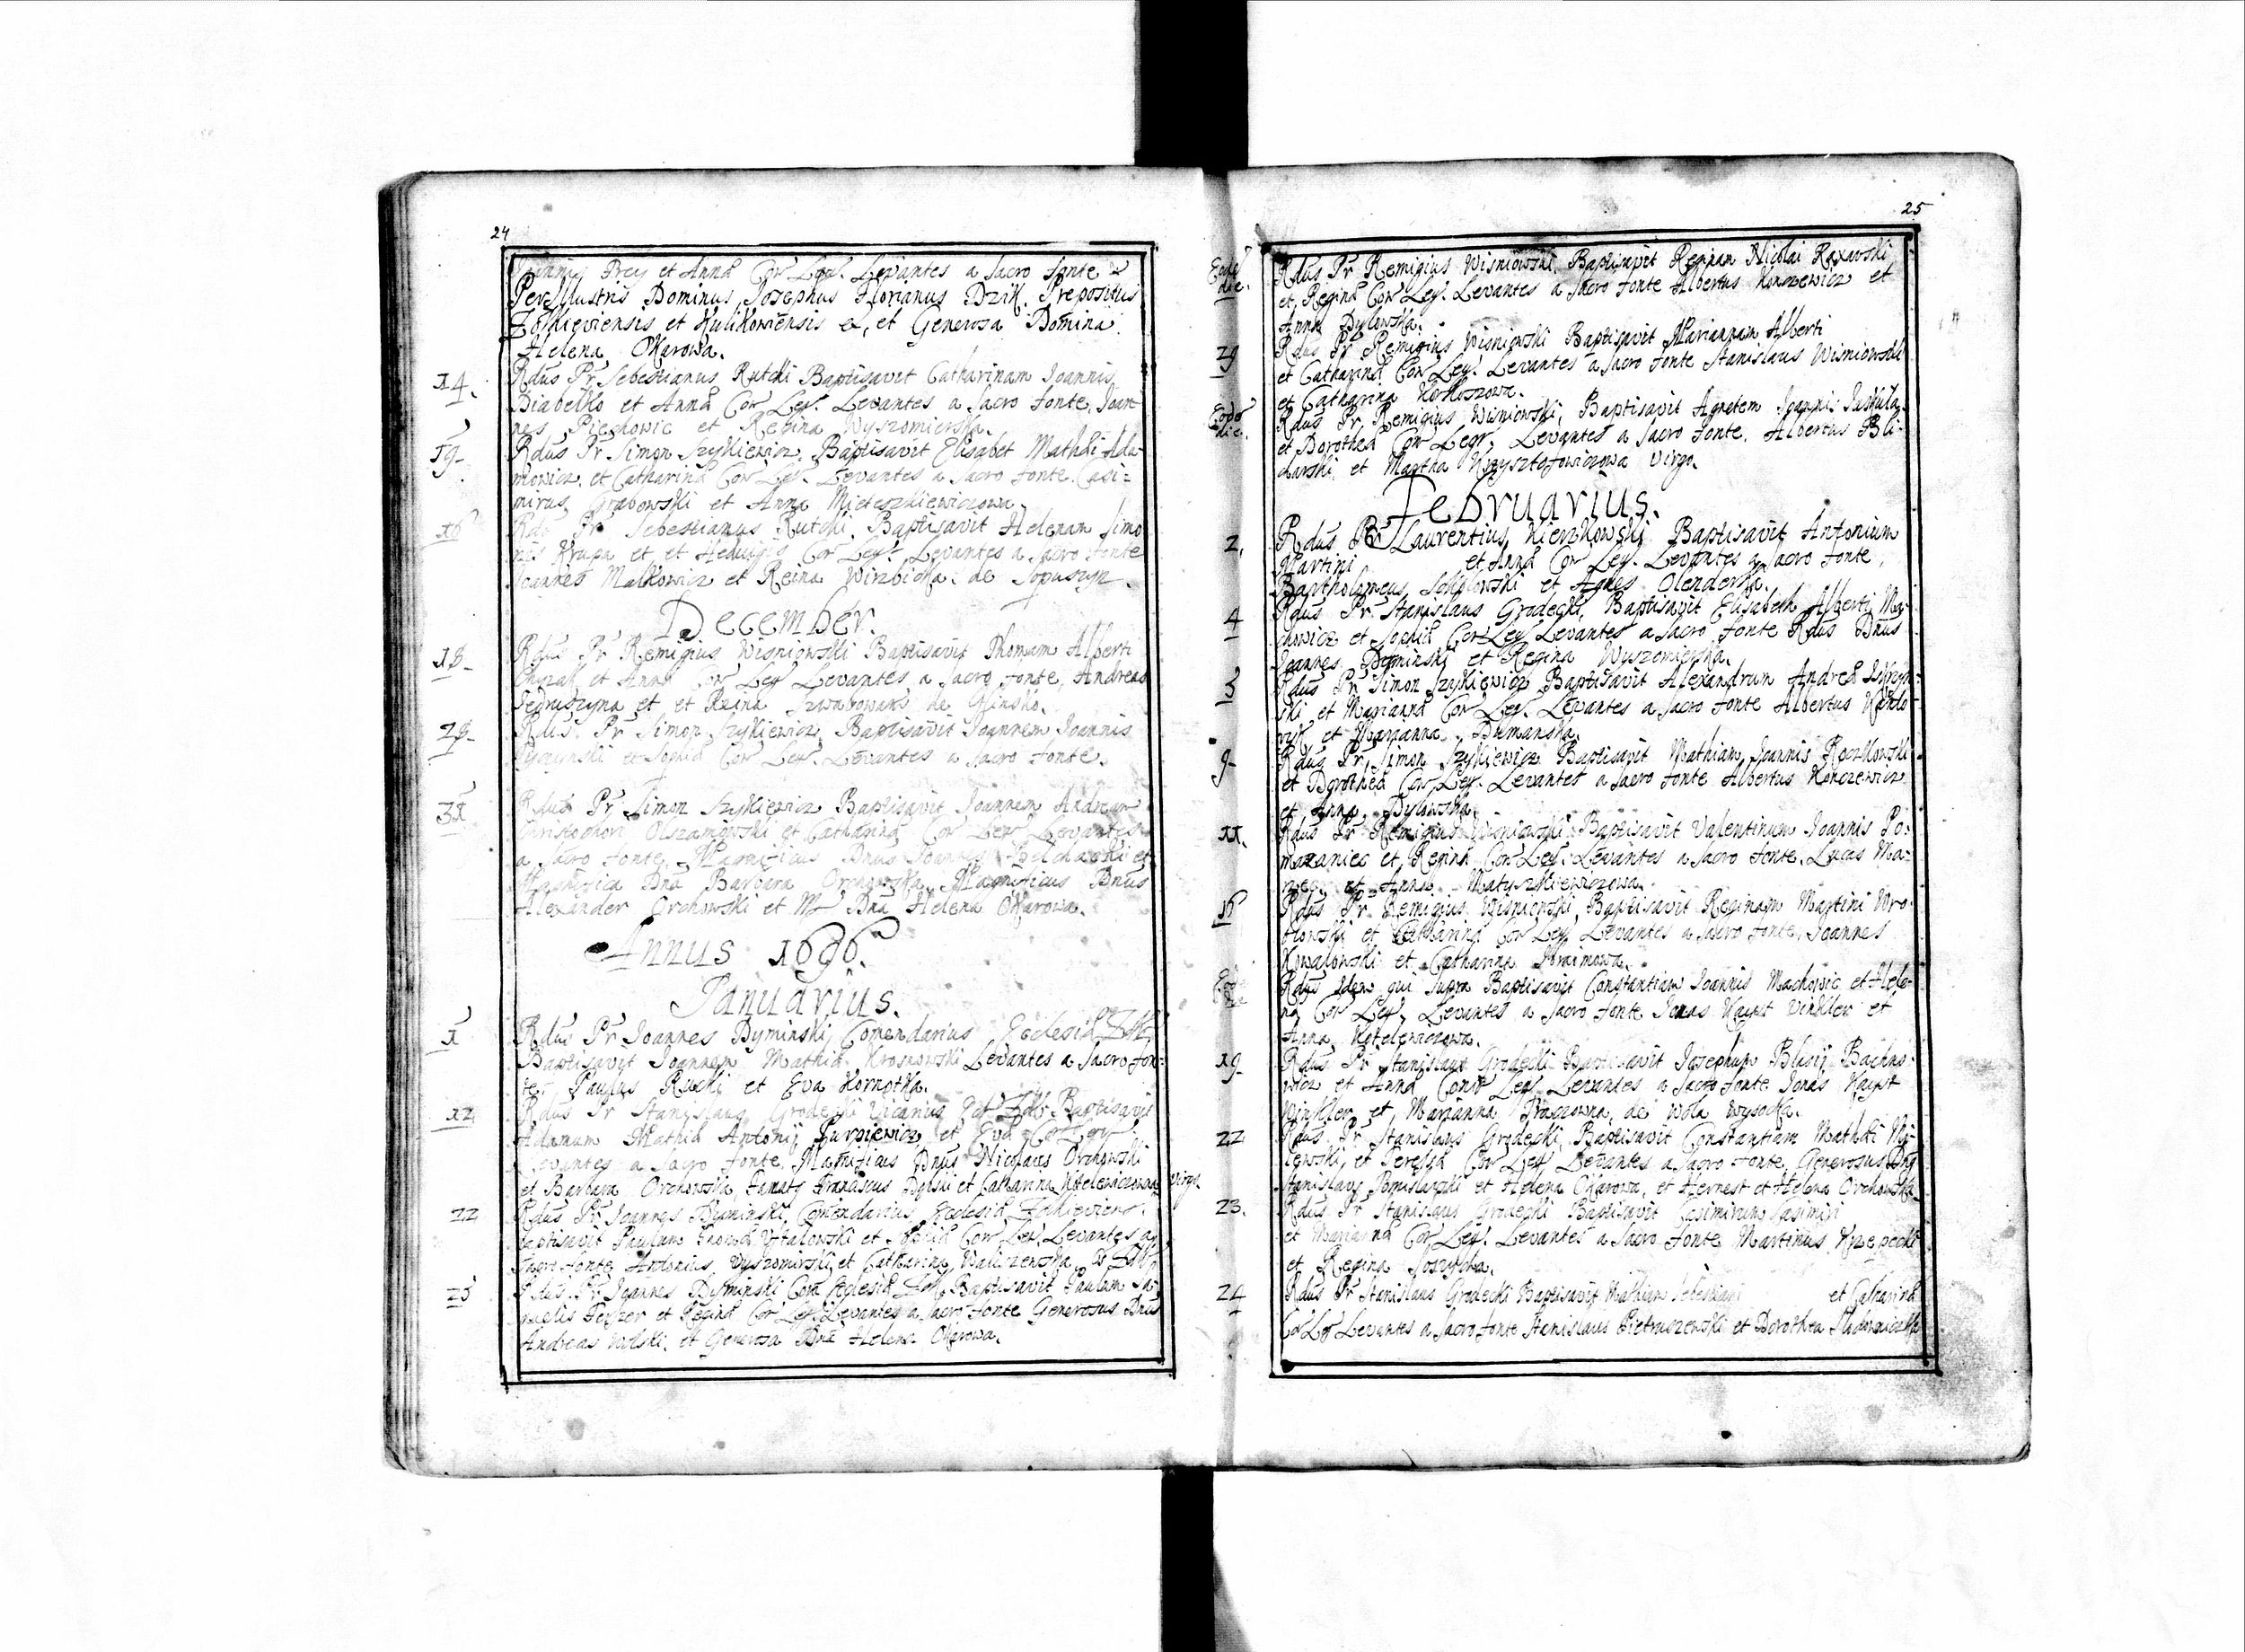 24
et Anna Cor Leg. Levantes a Sacro fonte
PerIllustris Dominus Josephus Florianus Dzik. Prepositus
Zolkieviensis et Kulikoviensis &, et Generosa Domina
Helena Okarowa.
14. Rdus Pr Sebestianus Rutcki Baptisavit Catharinam Joannis
Diabelko et Anna Cor Leg. Levantes a Sacro fonte, Joan-
nes Piechowic et Regina Wyszomierska.
19. Rdus Pr Simon Szykiewicz. Baptisavit Elisabet Mathei Ada-
mowicz. et Catharina Cor Leg. Levantes a Sacro fonte. Casi=
mirus Grabowski et Anna
26 Rdus Pr Sebestianus Rutcki. Baptisavit Helenam Simo
nis Krupa et et Hedwigis Cor Leg. Levantes a Sacro fonte
Joannes Malkowicz et Reina Wirzbicka. de Sopuszyn.
December.
18. Rdus Pr Remigius Wisniowski Baptisavit Thomam Alberti
et Anna Cor Leg Levantes a Sacro fonte, Andreas
et et Reina de Glinsko.
28. Rdus Pr Simon Szykiewicz. Baptisavit Joannem Joannis
et Sophia Cor Leg. Levantes a Sacro fonte.
31 Rdus Pr Simon Szykiewicz Baptisavit Joannem Andream
Christophori Olszamowski et Catharina Cor Leg Levantes
a Sacro fonte, Magnificus Dnus Joannes et
Magnifica Dna Barbara Orchowska, Magnificus Dnus
Alexander Orchowski et M Dna Helena Okarowa.
Annus 1696.
Januarius.
1 Rdus Pr Joannes Dyminski Comendarius Ecclesia Zolk.
Baptisavit Joannem Mathia Krosnowski Levantes a Sacro fon-
te, Paulus Rucki et Eva Kornotka.
12 Rdus Pr Stanislaus Grodecki Vicarius Baptisavit
Adamum Mathia Antonij et Eva Cor Leg
Levantes a Sacro fonte, Magnificus Dnus Nicolaus Orchowski
et Barbara Orchowska, Famaty Franciscus et Catharina Kotelewiczowna virgo.
22 Rdus Pr Joannes Dyminski, Comendarius Ecclesia Zolkieviens.
Baptisavit Paulum Thoma et Sophia Cor Leg. Levantes a
Sacro fonte Antonius Wyszomirski et Catharina Waliczewska
25 Rdus Pr Joannes Dyminski Com Ecclesia Zolk Baptisavit Paulum Da-
nielis et Regina Cor Leg. Levantes a Sacro fonte Generosus Dnus
Andreas Wolski. et Generosa Dna Helena Okarowa.
25
Eode die. Rdus Pr Remigius Wisniowski Baptisavit Reginam Nicolai
et Regina Cor Leg. Levantes a Sacro fonte Albertus Konczewicz et
Anna Dylowska.
29 Rdus Pr Remigius Wisniowski Baptisavit Mariannam Alberti
et Catharina Cor Leg. Levantes a Sacro fonte Stanislaus Wisniowski
et Catharina Kokoszowa.
Eode die. Rdus Pr. Remigius Wisniowski, Baptisavit Agnetem Joannis
et Dorothea Cor Legr. Levantes a Sacro fonte. Albertus Bli-
charski et Martha Krzysztofowiczowa virgo.
Februarius.
2. Rdus Pr Laurentius Kierzkowski Baptisavit Antonium
Martini et Anna Cor Leg. Levantes a Sacro fonte,
Bartholomeus et Agnes Olenderka.
4 Rdus Pr. Stanislaus Grodecki, Baptisavit Elisabeth Alberti Ma-
chowicz et Sophia Cor Leg Levantes a Sacro fonte Rdus Dnus
Joannes Dyminski et Regina Wyszomierska.
5 Rdus Pr Simon Szykiewicz Baptisavit Alexandrum Andrea
ski et Marianna Cor Leg. Levantes a Sacro fonte Albertus
et Marianna Dumanska.
9 Rdus Pr Simon Szykiewicz Baptisavit Mathiam Joannis Roczkowski
et Dorothea Cor Leg. Levantes a Sacro fonte Albertus Konczewicz
et Anna Dylowska.
11. Rdus Pr Remigius Wisniowski Baptisavit Valentinum Joannis Po-
mazaniec et Regina Cor Leg. Levantes a Sacro fonte, Lucas Ma-
et Anna Matyszkiewiczowa.
16 Rdus Pr Remigius Wisniowski, Baptisavit Reginam Martini Wro-
et Catharina Cor Leg Levantes a Sacro fonte, Joannes
Kowalowski et Catharina
Rdus Idem qui Supra Baptisavit Constantiam Joannis Machowic et Hele-
na Cor Leg. Levantes a Sacro fonte Jonas Haust Vinkler et
Anna Kotelewiczowa.
19. Rdus Pr Stanislaus Grodecki Baptisavit Josephum Blasij Bachno-
wicz et Anna Conr Leg. Levantes a Sacro fonte Jonas Haust
Winkler et Marianna de Wola Wysocka.
22 Rdus Pr Stanislaus Grodecki, Baptisavit Constantiam Mathei Mi-
lewski et Teressa Cor Leg. Levantes a Sacro fonte Generosus Dnus
Stanislaus et Helena Okarowa, et Hernest et Helena Orchowska
23. Rdus Pr Stanislaus Grodecki Baptisavit Casimirum Casimiri
et Marianna Cor Leg. Levantes a Sacro fonte Martinus Krzepecki
et Regina
24 Rdus Pr Stanislaus Grodecki Baptisavit Mathiam Sebestiani et Catharina
Cor Leg Levantes a Sacro fonte Stanislaus Pietruszewski et Dorothea